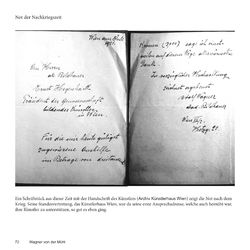 Not der Nachkriegszeit
Wien am
An Herrn
Bildhauer
Ernst Hegenbarth
Präsident der Genossenschaft
bildender Künstler
in Wien.
Für die mir heute gütigst
zugewiesene Aushilfe
im Betrage von
Kronen (3000) sage ich
auf diesem Wege allerwärmsten
Dank.
In vorzüglicher Hochachtung
ergebenst
Adolf Wagner
akad. Bildhauer
Wien
Ein Schriftstück aus dieser Zeit mit der Handschrift des Künstlers (Archiv Künstlerhaus Wien) zeigt die Not nach dem
Krieg. Seine Standesvertretung, das Künstlerhaus Wien, war da seine erste Ansprechadresse, welche auch bemüht war,
ihre Künstler zu unterstützen, so gut es eben ging.
72 Wagner von der Mühl